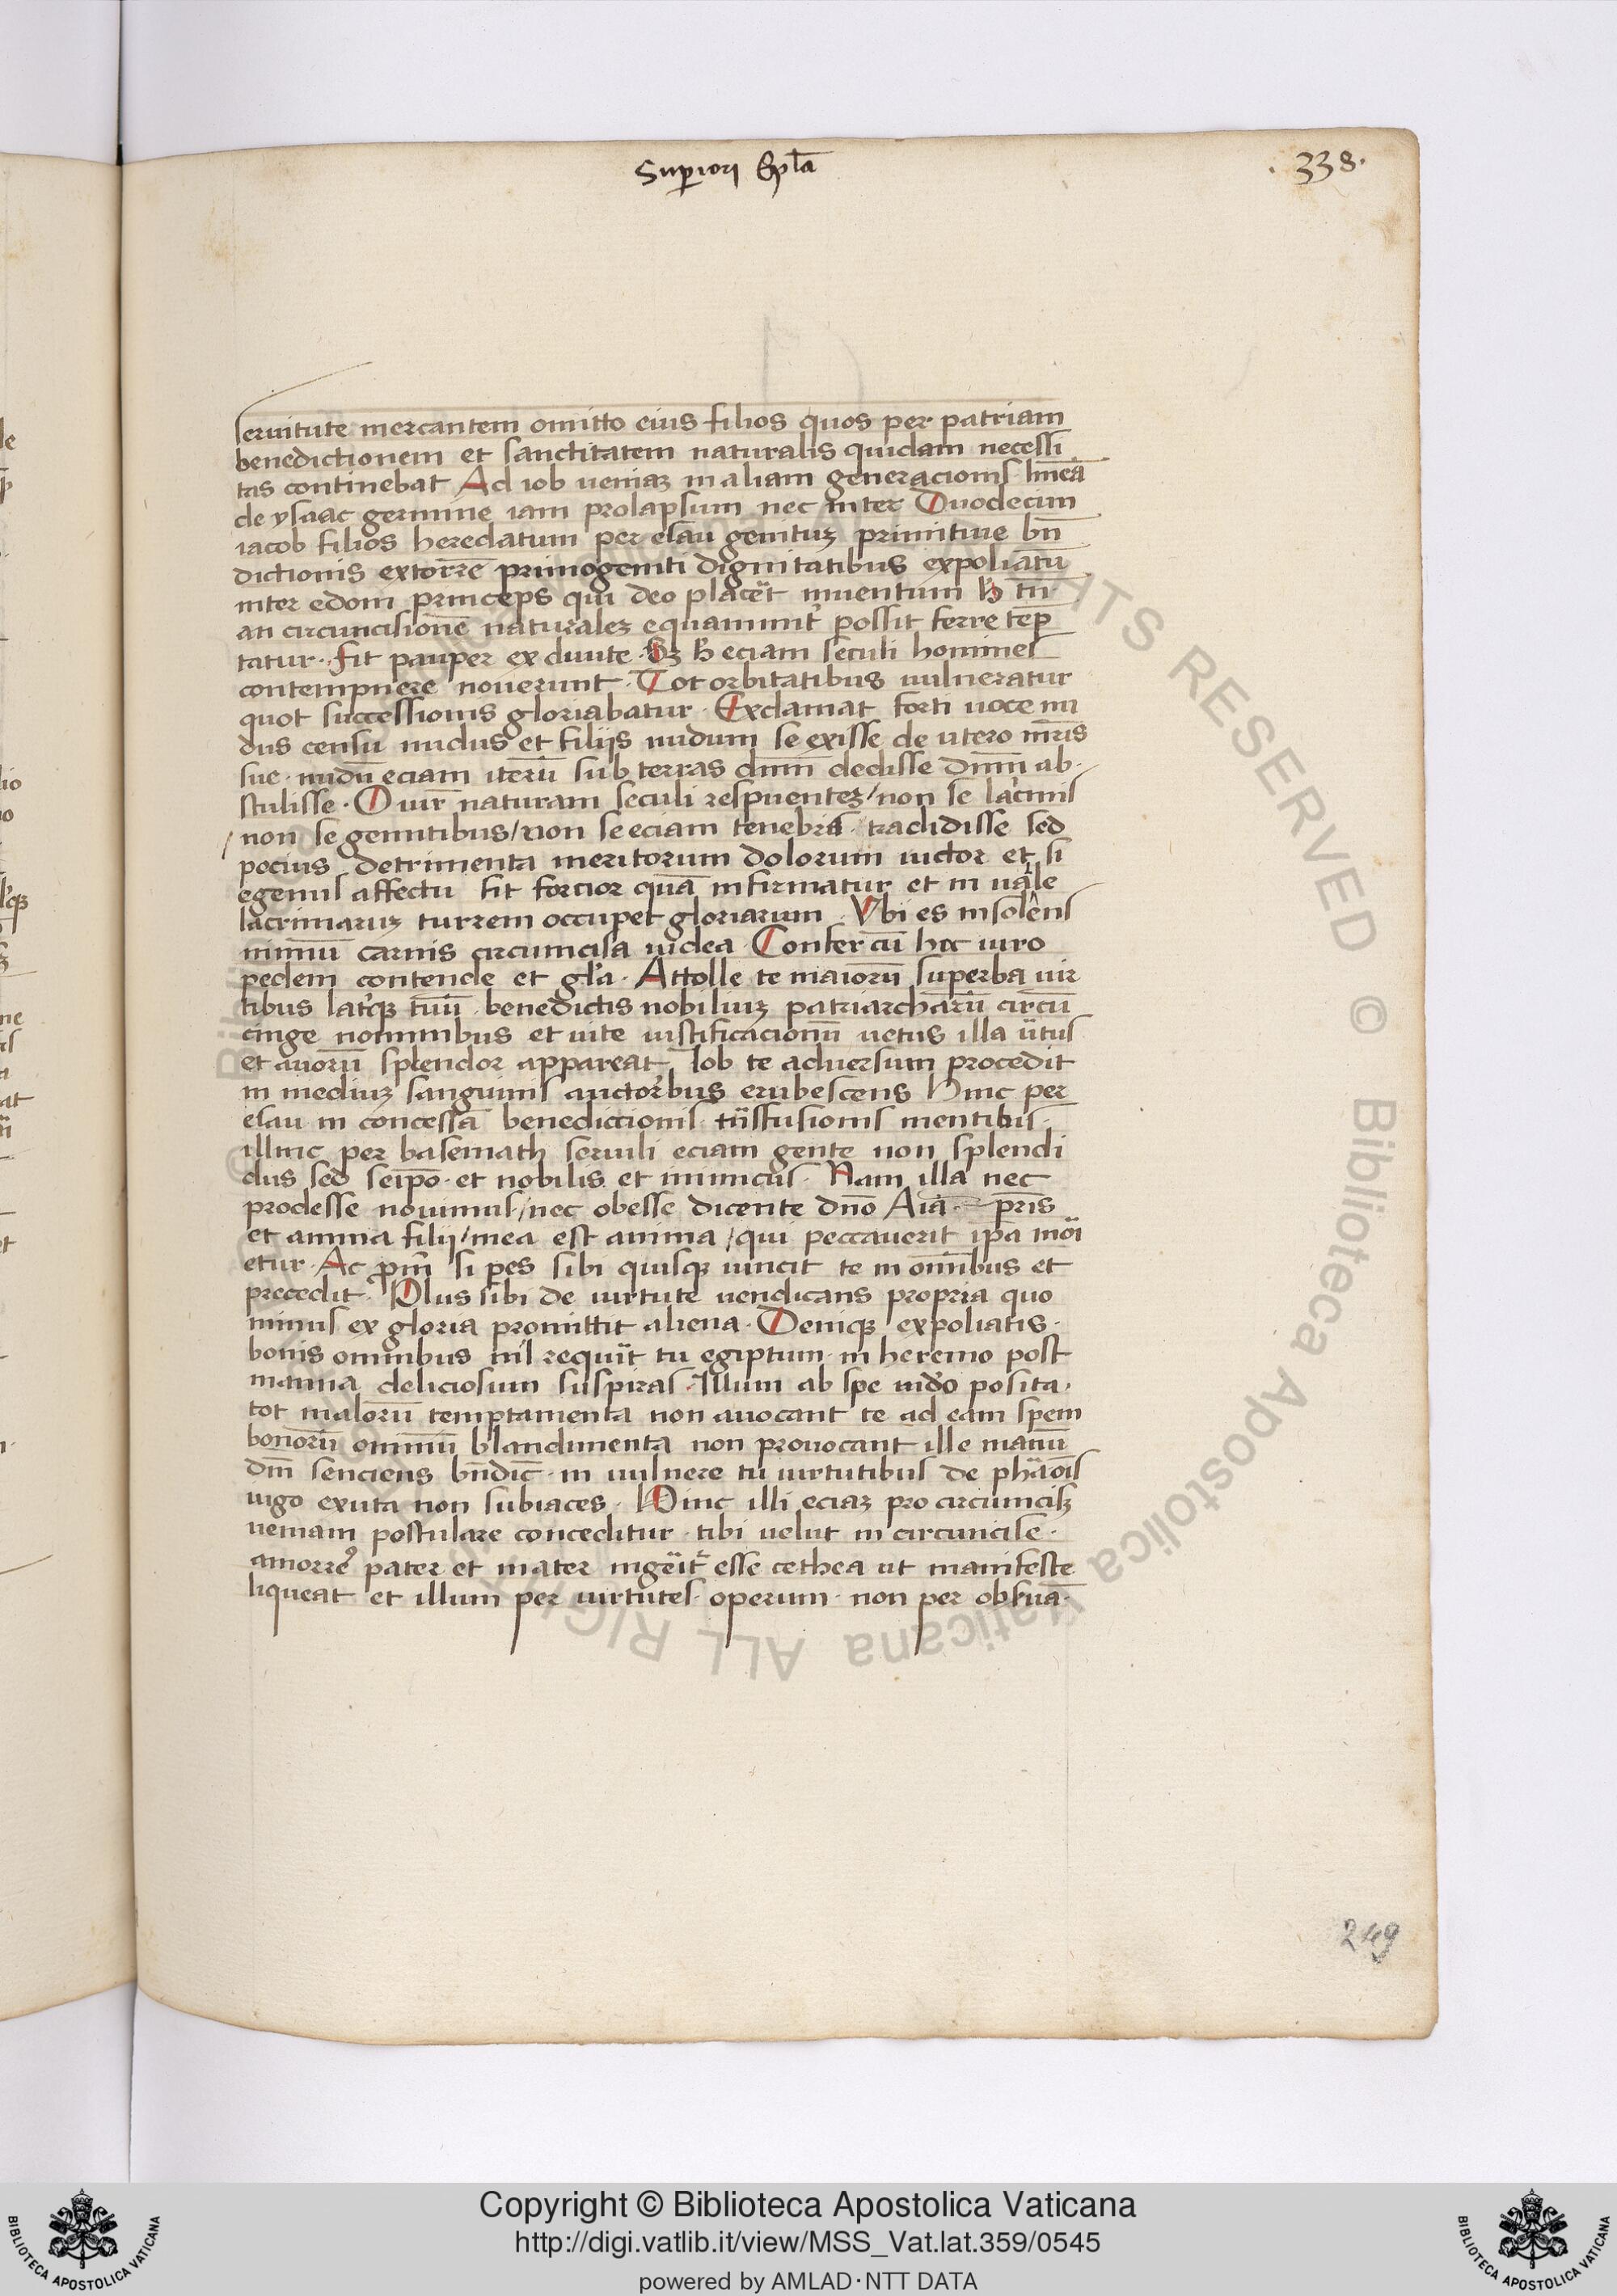 Superiori Epla
. 338.
seruitute mercantem omitto eius filios quos per patriam
benedictionem et sanctitatem naturalis quidam necessi
tas continebat Ad iob ueniaz in aliam generacionis lineā
de ysaac germine iam prolapsum nec inter Duodecim
iacob filios heredatum per esau genituz primitiue bn̄
dictionis extorrē primogeniti dignitatibus expoliatū
inter edom princeps qui deo inuentum
circuncisionē naturalez possit ferre
tatur · fit pauper ex diuite · Sz h eciam seculi homines
contempnere nouerunt · Tot orbitatibus uulneratur
quot successionis gloriabatur · Exclamat forti uoce nu
dus censu nudus et filijs nudum se exisse de utero mr̄is
sue · nudū eciam iterū sub terras dnm̄ dedisse dnm̄ ab·
stulisse · naturam seculi respuentez / non se lac̓mis
/ non se gemitibus / non se eciam tenebris tradidisse sed
pocius detrimenta meritorum dolorum uictor et si
egenus affectu fit forcior quā infirmatur et in ualle
lacrimaruz turrem occupet gloriarum · Vbi es insolens
nimiū carnis circumcisa iudea · Confer cū hoc uiro
pedem contende et gl̓a · Attolle te maiorū superba uir
tibus latq̓z tuū · benedictis nobiliuz patriarcharū circū
cinge nominibus et uite iustificacionū uetus illa ütus
et auorū splendor appareat Iob te aduersum procedit
in mediuz sanguinis auctoribus erubescens Hinc per
esau in concessa benediccionis mentibus ·
illinc per basemath seruili eciam gente non splendi
dus sed seip̄o · et nobilis et inimicus · Nam illa nec
prodesse nouimus / nec obesse dicente dn̄o Aīa · pr̄is
et anima filij / mea est anima / qui peccauerit ip̄a mori
etur · Ac pm̄ si pes sibi quisqz uincit te in omībus et
precedit · Plus sibi de uirtute uendicans propria quo
minus ex gloria promittit aliena · Deniqz expoliatis ·
bonis omnibus nil requirit tu egiptum in heremo post
manna deliciosum suspiras · Illum ab spe posita ·
tot malorū temptamenta non auocant te ad eam spem
bonorū omniū blandimenta non prouocant ille manū
dn̄i senciens bn̄dic̄ · in uulnere tu uirtutibus de phäois
iugo exuta non subiaces · Hinc illi eciaz pro circumcisz
ueniam postulare conceditur · tibi uelut in circuncise ·
amorre᾽ pater et mater esse cethea ut manifeste
liqueat et illum per uirtutes · operum · non per obsuā ·
249
Copyright © Biblioteca Apostolica Vaticana
http://digi.vatlib.it/view/MSS_Vat.lat.359/0545
powered by AMLAD·NTT DATA
BIBLIOTECA APOSTOLICA VATICANA
BIBLIOTECA APOSTOLICA VATICANA
© Biblioteca Apostolica Vaticana ALL RIGHTS RESERVED